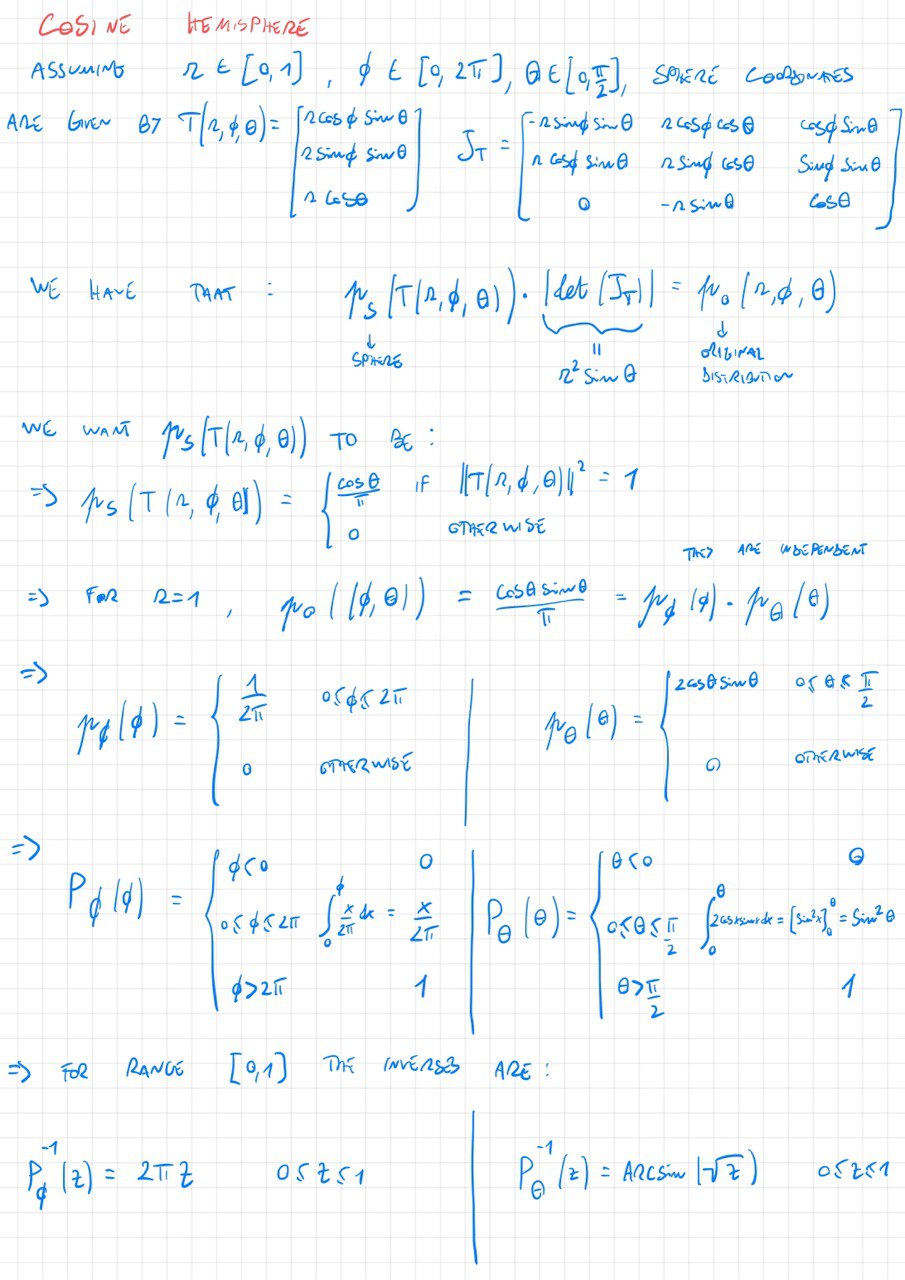 COSINE HEMISPHERE
ASSUMING r ∈ [0,1], ϕ ∈ [0,2π], θ∈[0,π/2], SPHERE COORDINATES
ARE GIVEN BY T(r,ϕ,θ) = [r cosϕ sinθ; r sinϕ sinθ; r cosθ] J_T = [-r sinϕ sinθ, r cosϕ cosθ, cosϕ sinθ; r cosϕ sinθ, r sinϕ cosθ, sinϕ sinθ; 0, -r sinθ, cosθ]
WE HAVE THAT : p_s(T(r,ϕ,θ)) · |det(J_T)| = p_o(r,ϕ,θ)
↓ SPHERE
|| r² sinθ
↓ ORIGINAL DISTRIBUTION
WE WANT p_s(T(r,ϕ,θ)) TO BE :
=> p_s(T(r,ϕ,θ)) = { cosθ/π IF ||T(r,ϕ,θ)||² = 1
0 OTHERWISE
THEY ARE INDEPENDENT
=> FOR r=1, p_o((ϕ,θ)) = cosθ sinθ/π = p_ϕ(ϕ) · p_θ(θ)
=>
p_ϕ(ϕ) = { 1/2π 0≤ϕ≤2π
0 OTHERWISE
p_θ(θ) = { 2cosθ sinθ 0≤θ≤π/2
0 OTHERWISE
=>
P_ϕ(ϕ) = { ϕ<0 0
0≤ϕ≤2π ∫_0^ϕ x/2π dx = x/2π
ϕ>2π 1
P_θ(θ) = { θ<0 0
0≤θ≤π/2 ∫_0^θ 2cosx sinx dx = [sin²x]_0^θ = sin²θ
θ>π/2 1
=> FOR RANGE [0,1] THE INVERSES ARE :
P_ϕ^-1(z) = 2πz 0≤z≤1
P_θ^-1(z) = ARCsin(√z) 0≤z≤1